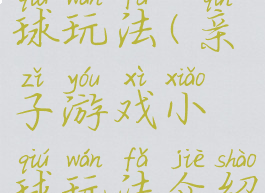 qiú wán fǎ qīn
球玩法(亲
zǐ yóu xì xiǎo
子游戏小
qiú wán fǎ jiè shào
球玩法介绍